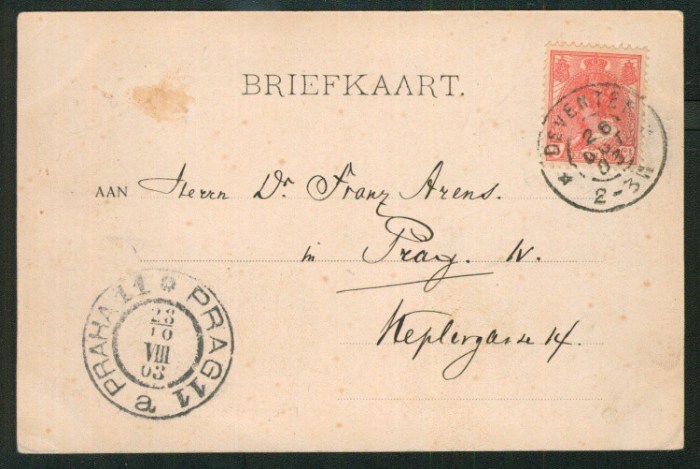 BRIEFKAART.
DEVENTER
26
OKT
03
2-3N
AAN Herrn Dr Franz Arens.
in Prag. IV.
Keplergasse 14.
PRAHA 11 * PRAG 11 a
28/10
VIII
03